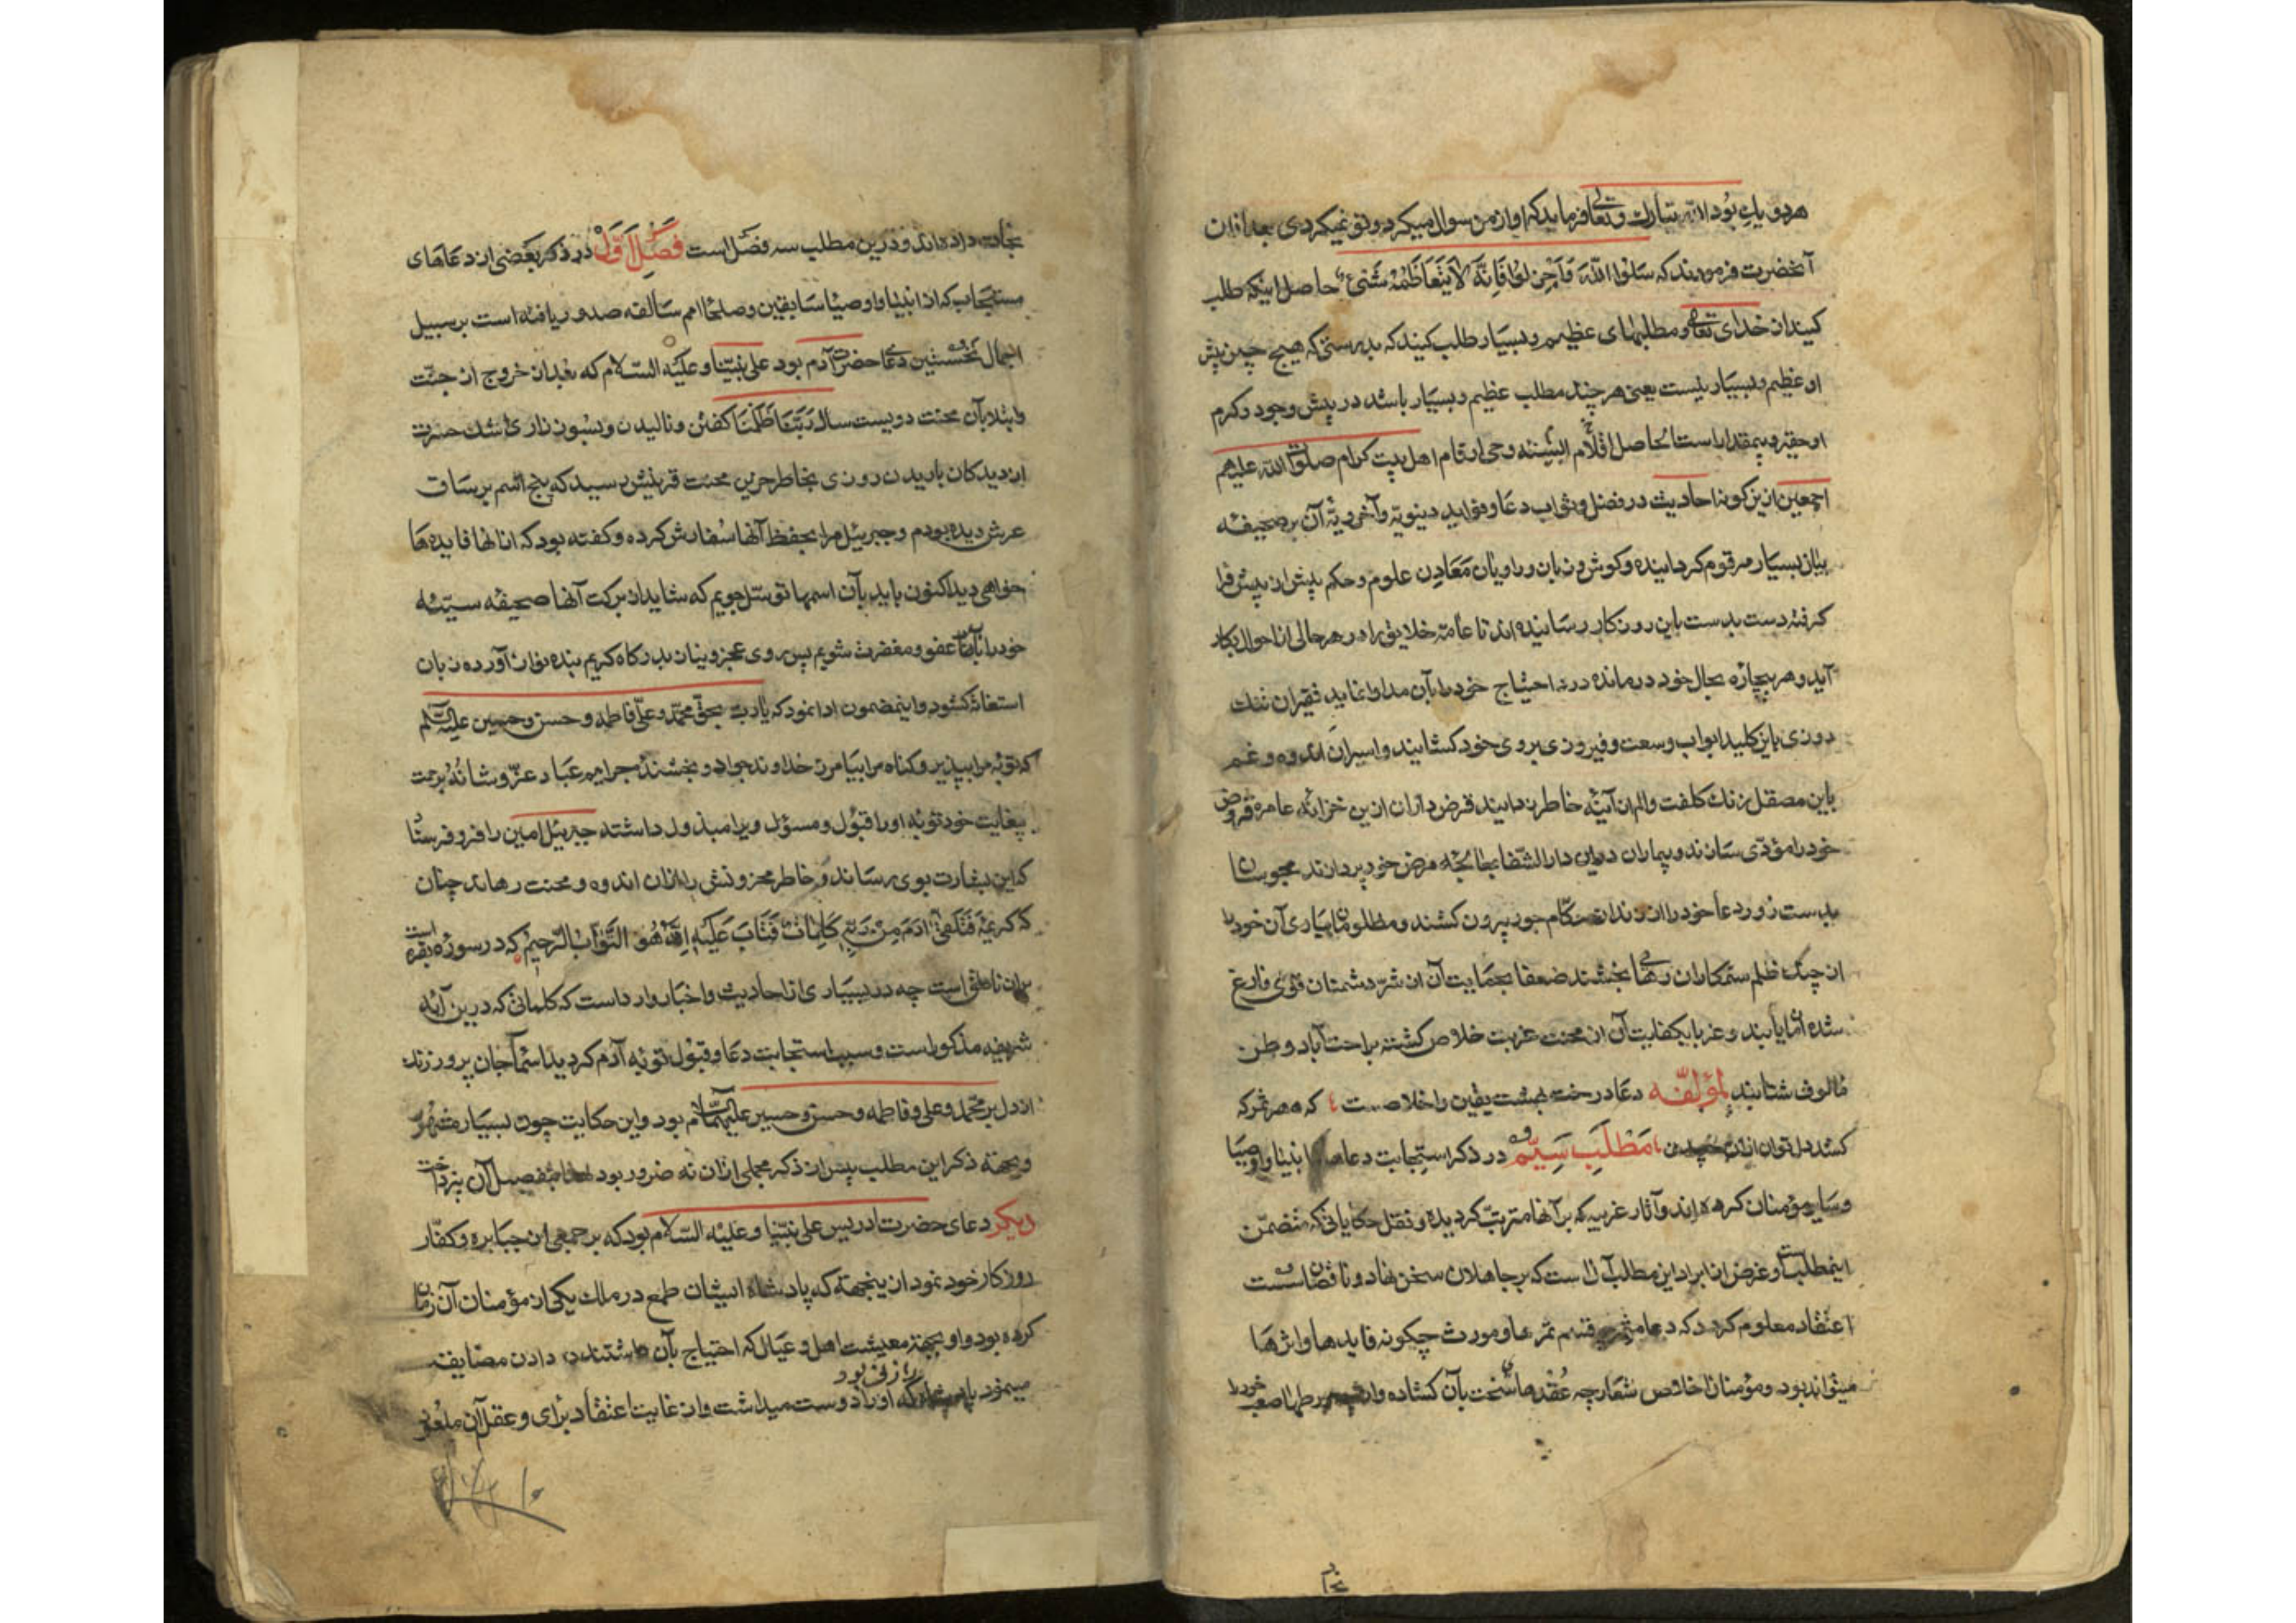 هردو یك بود الله تبارك وتعالی فرماید که او از من سوال میکرد و تو نمیکردی بعد ازان
آنحضرت فرمودند که سَلُوا اللّهَ وَاَجْزِلُوا فَاِنَّهُ لایَتَعاظَمُهُ شَیْءٌ حاصل اینکه طلب
کنید از خدای تعالی و مطلبهای عظیم و بسیار طلب کنید که بدرستی که هیچ چیز پیش
او عظیم و بسیار نیست یعنی هر چند مطلب عظیم و بسیار باشد در پیش وجود و کرم
او حقیر و بیمقدار است الحاصل اقلام السنه وحی ارقام اهل بیت کرام صلوات الله علیهم
اجمعین ازین کونه احادیث در فضل و ثواب دعا و فواید دینویّه و آخرویّه آن بر صحیفه
بیان بسیار مرقوم کردانیده و کوش و زبان و راویان مَعَادِن علوم و حکم پیش از پیش فرا
کرفته دست بدست باین روزکار رسانیده اند تا عامّه خلایق را در هر حالی از احوال بکار
آید و هر بیچاره بحال خود درمانده درد احتیاج خود را بآن مداوا نماید فقیران تنك
روزی باین کلید ابواب وسعت و فیروزی بروی خود کشایند و اسیران اندوه و غم
باین مصقل زنك کلفت و الم از آینه خاطر زدایند قرض داران ازین خزانه عامره قروض
خود را مؤدّی سازند و بیماران درین دار الشّفا بمعالجه مرض خود پردازند محبوسان
بدست زور دعا خود را از زندان حکّام جور بیرون کشند و مظلومان بیاری آن خود را
از چنك ظلم ستمکاران رهایی بخشند ضعفا بحمایت آن از شرّ دشمنان قوی فارغ
شده امان یابند و غربا بکفایت آن از محنت غربت خلاص کشته براحت آباد وطن
مالوف شتابند لمؤلّفه دعا درخت بهشت یقین و اخلاصست که هر ثمر که
کشد دل توان ازان چیدن مَطْلَب سِیّم در ذکر استجابت دعاها انبیا و اوصیا
و سایر مؤمنان کرده اند و آثار غریبه که بر آنها مترتّب کردیده و نقل حکایاتی که متضمّن
اینمطلبست و غرض از ایراد این مطلب آنست که بر جاهلان سخن نهاد و ناقصان سست
اعتقاد معلوم کردد که دعا قسم ثمر عا و مورث چکونه فایدها و اثرها
میتواند بود و مؤمنان اخلاص شعار چه عُقْدهای سخت بآن کشاده و از خود را
نجات داده اند و درین مطلب سه فصل است فَصْلِ اَوَّلْ در ذکر بعضی از دعاهای
مستجاب که از انبیا و اوصیا سابقین و صلحا امم سالفه صدور یافته است بر سبیل
اجمال نخستین دعای حضرت آدم بود علی نبیّنا و علیه السلام که بعد از خروج از جنّت
و ابتلا بآن محنت دویست سال رَبَّنَا ظَلَمْنَا کفتن و نالیدن و بسوز زاری اشك حسرت
از دیدکان باریدن روزی بخاطر حزین محنت قرینش رسید که پنج اسم بر ساق
عرش دیده بودم و جبرئیل مرا بحفظ آنها سفارش کرده و کفته بود که ازانها فایدها
خواهی دید اکنون باید بآن اسمها توسّل جویم که شاید از برکت آنها صحیفه سیّئه
خود را عفو و مغفرت شویم پس روی عجز و نیاز بدرکاه کریم بنده نواز آورده زبان
استغاثه کشود و اینمضمون ادا نمود که یا ربّ بحقّ محمّد و علی و فاطمه و حسن و حسین علیه السلام
که توبه مرا بپذیر و کناه مرا بیامرز خداوند جواد و بخشندهٔ جرایم عباد عزّ و شانُهُ برحمت
بیغایت خود توبه او را قبول و مسؤل ویرا مبذول داشته جبرئیل امین را فرو فرستاد
که این بشارت بوی رساند و خاطر محزونش را ازان اندوه و محنت رهاند چنان
که کریمهٔ فَتَلَقّیٰ آدَمَ مِنْ رَبِّهِ کَلِمَاتٍ فَتَابَ عَلَیْهِ اِنَّهُ هُوَ التَّوَّابُ الرَّحیمُ که در سوره بقره است
بران ناطق است چه در بسیاری از احادیث و اخبار وارد است که کلماتی که درین آیه
شریفه مذکور است و سبب استجابت دعا و قبول توبه آدم کردید اسما جان پرور زنده
ازدل بر محمّد و علی و فاطمه و حسن و حسین علیهم السلام بود و این حکایت چون بسیار مشهور
و بجهة ذکر این مطلب پیش از ذکر مجملی ازان نه ضرور بود بتفصیل آن نپرداخت
دیکر دعای حضرت ادریس علی نبیّنا و علیه السّلام بود که بر جمعی از جبابره و کفّار
روزکار خود نمود ازینجهة که پادشاه ایشان طمع در ملك یکی از مؤمنان آن زمان
کرده بود و او بجهة معیشت اهل و عیال که احتیاج بآن داشتند در دادن مضایقه
مینمود زنی بود که او را دوست میداشت و از غایت اعتقاد برای و عقل آن ملعونه